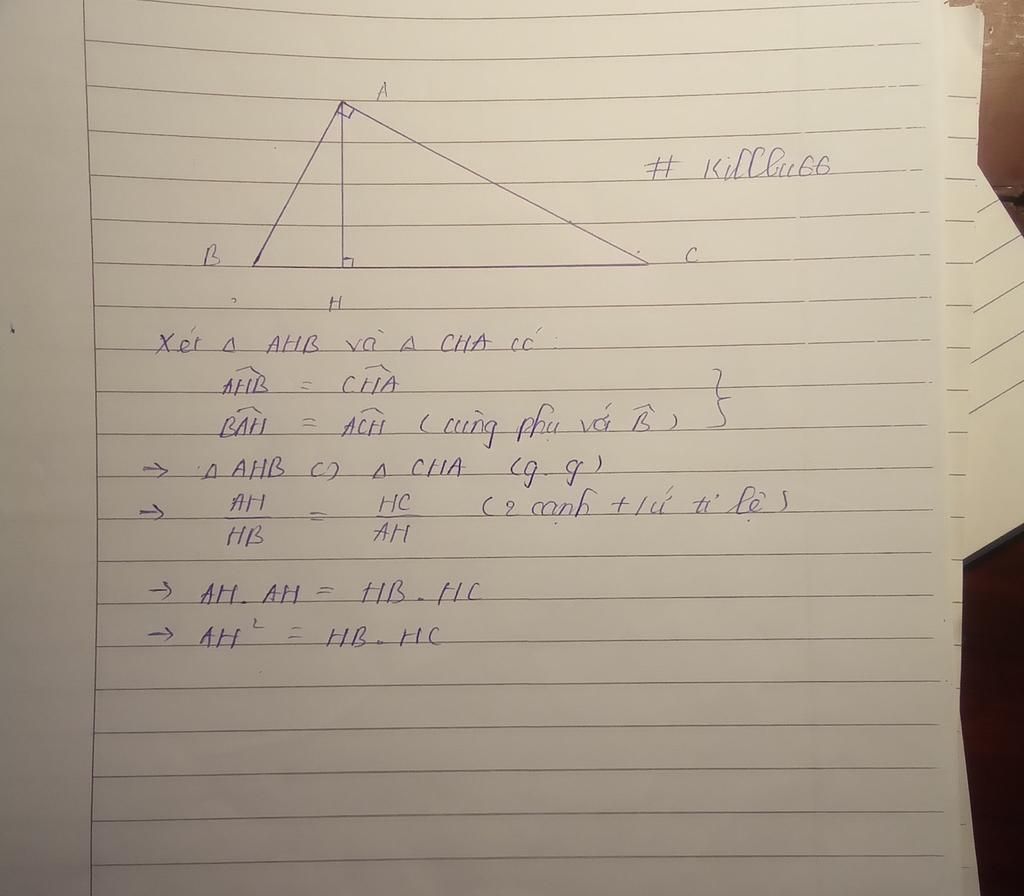 A
# KillClu66
B
C
H
Xét Δ AHB và Δ CHA có :
AHB = CHA
BAH = ACH (cùng phụ với B) }
→ Δ AHB ∽ Δ CHA (g.g)
→ AH/HB = HC/AH (2 cạnh t/ứ tỉ lệ)
→ AH. AH = HB. HC
→ AH² = HB. HC